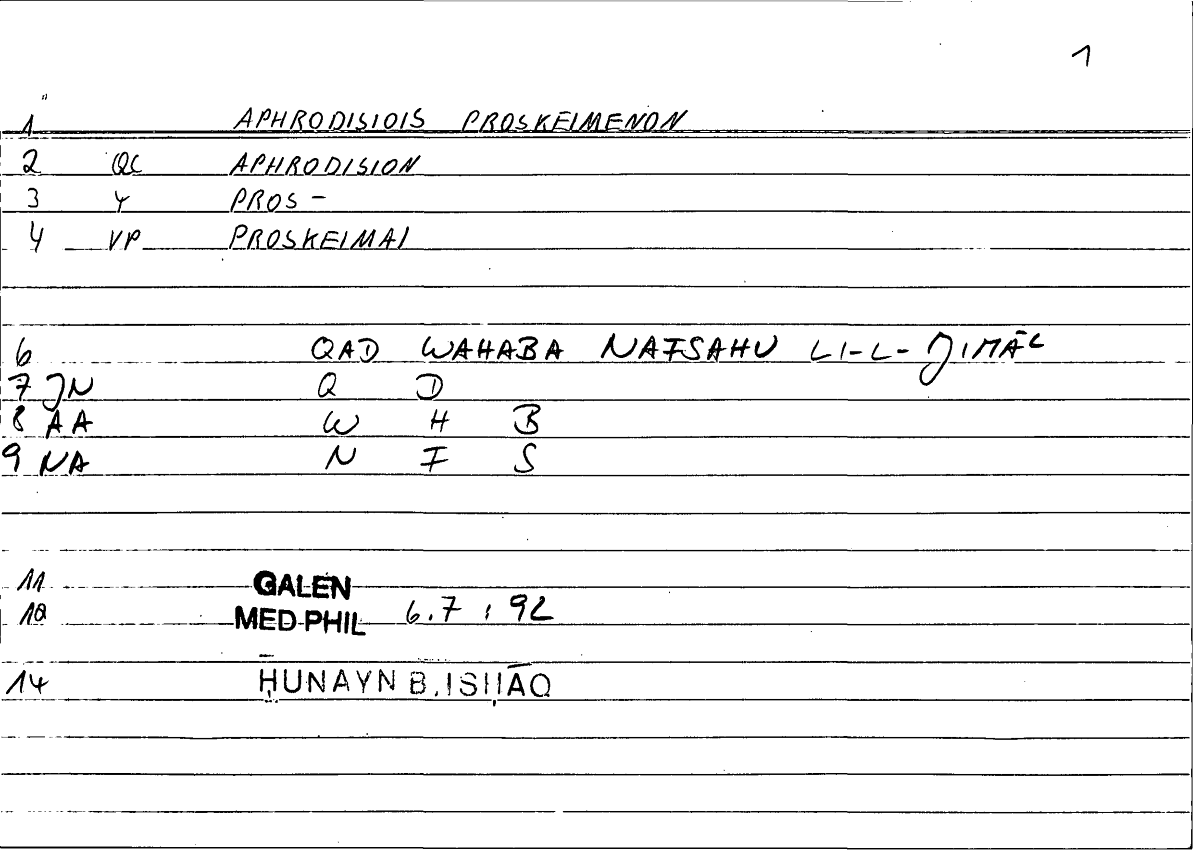 1
1 APHRODISIOIS PROSKEIMENON
2 QC APHRODISION
3 Y PROS-
4 VP PROSKEIMAI
6 QAD WAHABA NAFSAHU LI-L-JIMĀC
7 JN Q D
8 AA W H B
9 NA N F S
11 GALEN
10 MED-PHIL 6.7 : 92
14 ḤUNAYN B. ISḤĀQ